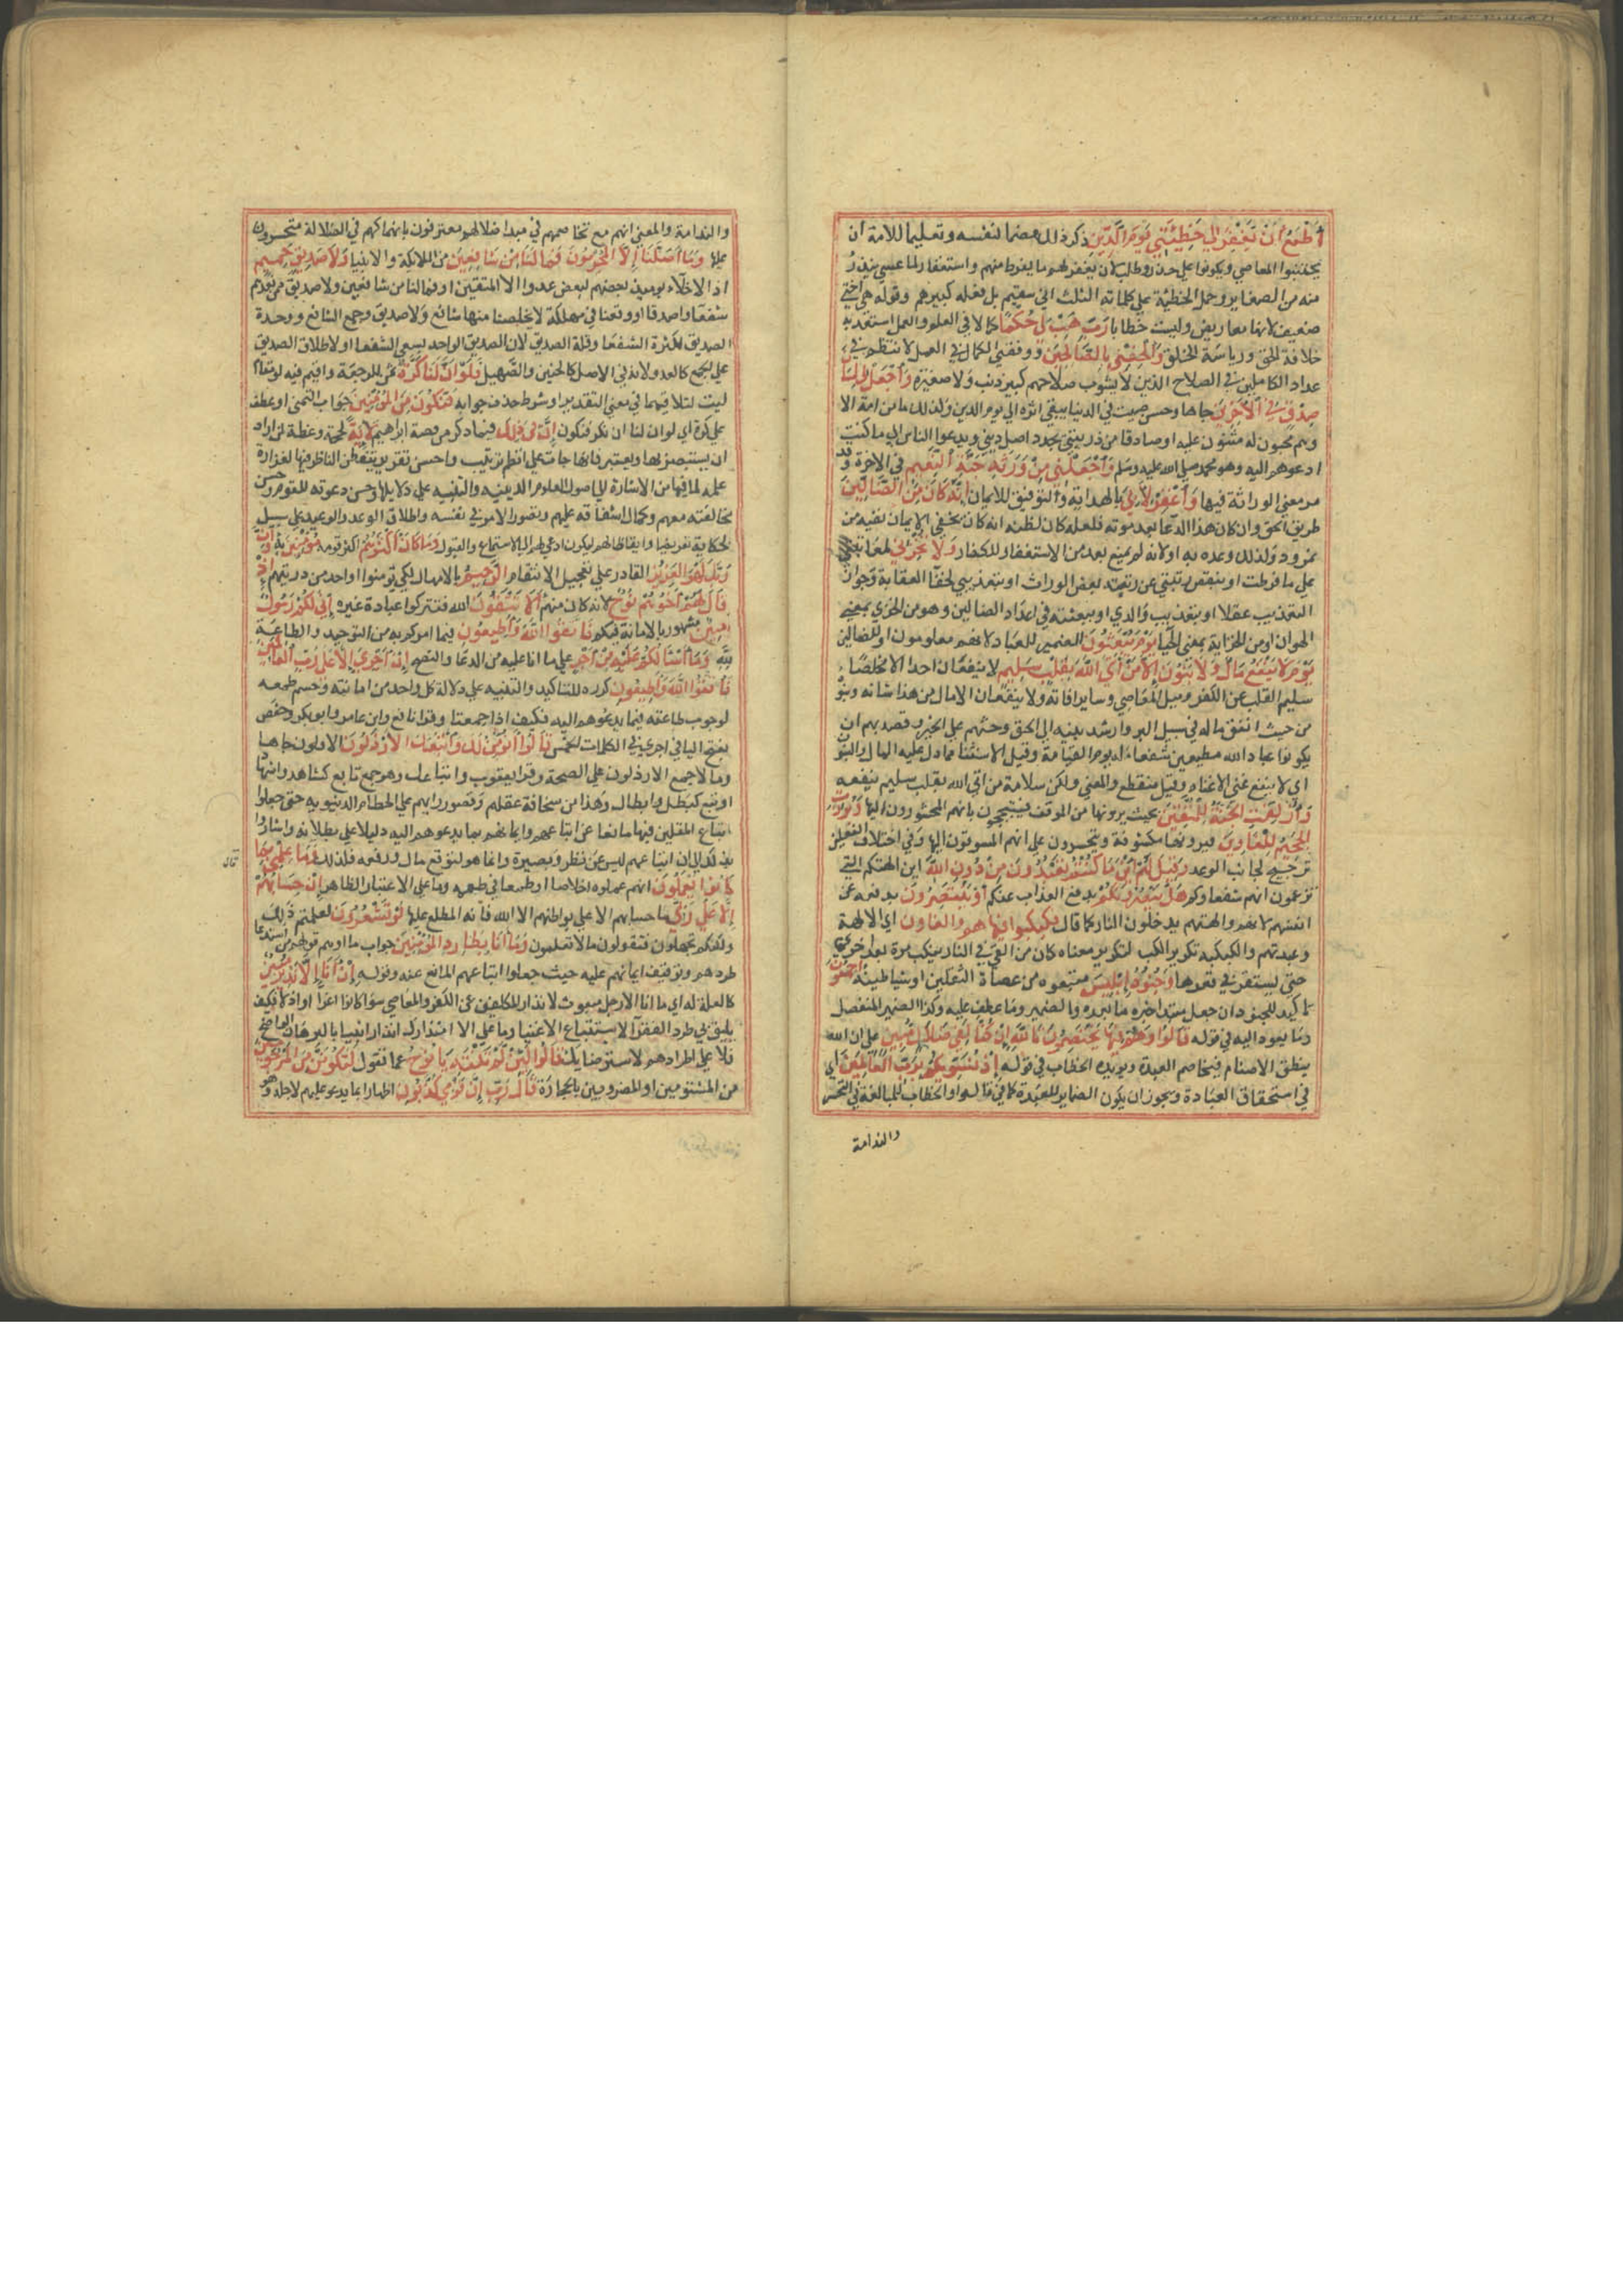 أَطْمَعُ أَنْ يَغْفِرَ لِي خَطِيئَتِي يَوْمَ الدِّينِ ذكر ذلك هضما لنفسه وتعليما للامة ان
يجتنبوا المعاصي ويكونوا على حذر وطلب لان يغفر لهم ما يفرط منهم واستغفارا لما عسى يندر
منه من الصغاير وحمل الخطيئة على كلماته الثلث اني سقيم بل فعله كبيرهم وقوله هي اختي
ضعيف لانها معاريض وليست خطايا رَبِّ هَبْ لِي حُكْمًا كمالا في العلم والعمل استعد به
خلافة الحق ورياسة الخلق وَأَلْحِقْنِي بِالصَّالِحِينَ ووفقني للكمال في العمل لانتظم في
عداد الكاملين في الصلاح الذين لا يشوب صلاحهم كبير ذنب ولا صغيره وَاجْعَلْ لِي لِسَانَ
صِدْقٍ فِي الْآخِرِينَ جاها وحسن صيت في الدنيا يبقى اثره الى يوم الدين ولذلك ما من امة الا
وهم محبون له مثنون عليه او صادقا من ذريتي يجدد اصل ديني ويدعوا الناس الى ما كنت
ادعوهم اليه وهو محمد صلى الله عليه وسلم وَاجْعَلْنِي مِنْ وَرَثَةِ جَنَّةِ النَّعِيمِ في الاخرة وقد
مر معنى الوراثة فيها وَاغْفِرْ لِأَبِي بالهداية والتوفيق للايمان إِنَّهُ كَانَ مِنَ الضَّالِّينَ
طريق الحق وان كان هذا الدعا بعد موته فلعله كان لظنه انه كان يخفي الايمان تقية من
نمرود ولذلك وعده به او لانه لم يمنع بعد من الاستغفار للكفار وَلَا تُخْزِنِي بمعاتبتي
على ما فرطت او بنقص رتبتي عن رتبة بعض الوراث او بتعذيبي لخفا العاقبة وجواز
التعذيب عقلا او بتعذيب والدي او ببعثته في اعداد الضالين وهو من الخزي بمعنى
الهوان او من الخزاية بمعنى الحيا يَوْمَ يُبْعَثُونَ الضمير للعباد لانهم معلومون او للضالين
يَوْمَ لَا يَنْفَعُ مَالٌ وَلَا بَنُونَ إِلَّا مَنْ أَتَى اللَّهَ بِقَلْبٍ سَلِيمٍ لا ينفعان احدا الا مخلصا
سليم القلب عن الكفر وميل المعاصي وساير افاته ولا ينفعان الا مال من هذا شانه وبنوه
من حيث انفق ماله في سبيل البر وارشد بنيه الى الحق وحثهم على الخير وقصد بهم ان
يكونوا عباد الله مطيعين شفعاء له يوم القيامة وقيل الاستثنا مما دل عليه المال والبنون
اي لا ينفع غنى الا غناه وقيل منقطع والمعنى ولكن سلامة من اتى الله بقلب سليم ينفعه
وَأُزْلِفَتِ الْجَنَّةُ لِلْمُتَّقِينَ بحيث يرونها من الموقف فيتبجحون بانهم المحشورون اليها وَبُرِّزَتِ
الْجَحِيمُ لِلْغَاوِينَ فيرونها مكشوفة ويتحسرون على انهم المسوقون اليها وفي اختلاف الفعلين
ترجيح لجانب الوعد وَقِيلَ لَهُمْ أَيْنَ مَا كُنْتُمْ تَعْبُدُونَ مِنْ دُونِ اللَّهِ اين الهتكم التي
تزعمون انهم شفعاوكم هَلْ يَنْصُرُونَكُمْ بدفع العذاب عنكم أَوْ يَنْتَصِرُونَ بدفعه عن
انفسهم لانهم والهتهم يدخلون النار كما قال فكبكبوا فيها هم والغاون اي الالهة
وعبدتهم والكبكبه تكرير الكب لتكرير معناه كان من القي في النار ينكب مرة بعد اخرى
حتى يستقر في قعرها وَجُنُودُ إِبْلِيسَ متبعوه من عصاة الثقلين او شياطينه أَجْمَعُونَ
تاكيد للجنود ان جعل مبتدا خبره ما بعده والضمير وما عطف عليه وكذا الضمير المنفصل
وما يعود اليه في قوله قَالُوا وَهُمْ فِيهَا يَخْتَصِمُونَ تَاللَّهِ إِنْ كُنَّا لَفِي ضَلَالٍ مُبِينٍ على ان الله
ينطق الاصنام فيخاصم العبدة ويويده الخطاب في قوله إِذْ نُسَوِّيكُمْ بِرَبِّ الْعَالَمِينَ اي
في استحقاق العبادة ويجوز ان يكون الضماير للعبدة كما في قالوا والخطاب للمبالغة في التحسر
والندامة
والندامة والمعنى انهم مع تخاصمهم في مبدا ضلالهم معترفون بانهماكهم في الضلالة متحسرون
عليها وَمَا أَضَلَّنَا إِلَّا الْمُجْرِمُونَ فَمَا لَنَا مِنْ شَافِعِينَ من الملائكة والانبيا وَلَا صَدِيقٍ حَمِيمٍ
اذ الاخلاء يومئذ بعضهم لبعض عدو الا المتقين او فما لنا من شافعين ولا صديق ممن نعدهم
شفعا واصدقا او وقعنا في مهلكة لا يخلصنا منها شافع ولا صديق وجمع الشافع ووحدة
الصديق لكثرة الشفعا وقلة الصديق لان الصديق الواحد يسعى الشفعا او لاطلاق الصديق
على الجمع كالعدو لانه في الاصل كالحنين والصهيل فَلَوْ أَنَّ لَنَا كَرَّةً تمن للرجعة واقيم فيه لو مقام
ليت لتلاقيهما في معنى التقدير او شرط حذف جوابه فَنَكُونَ مِنَ الْمُؤْمِنِينَ جواب التمنى او عطف
على كرة اي لو ان لنا ان نكر فنكون إِنَّ فِي ذَلِكَ فيما ذكر من قصة ابراهيم لَآيَةً لحجة وعظة لمن اراد
ان يستبصر بها ويعتبر فانها جات على انظم ترتيب واحسن تقرير يتفطن الناظر فيها لغزارة
علمه لما فيها من الاشارة الى اصول العلوم الدينية والتنبيه على دلايلها وحسن دعوته للقوم وحسن
مخالفته معهم وكمال اشفاقه عليهم وتصور الامر في نفسه واطلاق الوعد والوعيد على سبيل
الحكاية تعريضا وايقاظا لهم ليكون ادعى لهم الى الاستماع والقبول وَمَا كَانَ أَكْثَرُهُمْ اكثر قومه مُؤْمِنِينَ به وَإِنَّ
رَبَّكَ لَهُوَ الْعَزِيزُ القادر على تعجيل الانتقام الرَّحِيمُ بالامهال لكي يومنوا او احد من ذريتهم
قَالَ لَهُمْ أَخُوهُمْ نُوحٌ لانه كان منهم أَلَا تَتَّقُونَ الله فتتركوا عبادة غيره إِنِّي لَكُمْ رَسُولٌ
أَمِينٌ مشهور بالامانة فيكم فَاتَّقُوا اللَّهَ وَأَطِيعُونِ فيما امركم به من التوحيد والطاعة
لله وَمَا أَسْأَلُكُمْ عَلَيْهِ مِنْ أَجْرٍ على ما انا عليه من الدعا والنصح إِنْ أَجْرِيَ إِلَّا عَلَى رَبِّ الْعَالَمِينَ
فَاتَّقُوا اللَّهَ وَأَطِيعُونِ كرره للتاكيد والتنبيه على دلالة كل واحد من امانته وحسم طمعه
لوجوب طاعته فيما يدعوهم اليه فكيف اذا اجتمعتا وقرا نافع وابن عامر وابو بكر وحفص
بفتح اليا في اجري في الكلمات الخمس قَالُوا أَنُؤْمِنُ لَكَ وَاتَّبَعَكَ الْأَرْذَلُونَ الاقلون جاها
ومالا جمع الارذلون على الصحة وقرا يعقوب واتباعك وهو جمع تابع كشاهد واشهاد
او تبع كبطل وابطال وهذا من سخافة عقلهم وقصور رايهم على الحطام الدنيويه حتى جعلوا
اتباع المقلين فيها مانعا عن اتباعهم وايمانهم بما يدعوهم اليه دليلا على بطلانه واشاروا
بذلك الى ان اتباعهم ليس عن نظر وبصيرة وانما هو لتوقع مال ورفعه فلذلك وَمَا عِلْمِي بِمَا
قال
كَانُوا يَعْمَلُونَ انهم عملوه اخلاصا او طمعا في طعمه وما على الا اعتبار الظاهر إِنْ حِسَابُهُمْ
إِلَّا عَلَى رَبِّي ما حسابهم الا على بواطنهم الا الله فانه المطلع عليها لَوْ تَشْعُرُونَ لعلمتم ذلك
ولكنكم تجهلون فتقولون مالا تعلمون وَمَا أَنَا بِطَارِدِ الْمُؤْمِنِينَ جواب ما اوهم قولهم من استدعا
طردهم وتوقيف ايمانهم عليه حيث جعلوا اتباعهم المانع عنه وقوله إِنْ أَنَا إِلَّا نَذِيرٌ مُبِينٌ
كالعلة له اي ما انا الا رجل مبعوث لانذار المكلفين عن الكفر والمعاصي سوا كانوا اعزا او اذلا فكيف
يليق بي طرد الفقرآ لاستتباع الاغنيا وما على الا انذاركم انذارا بينا بالبرهان الواضح
فلا على اطرادهم لاسترضايكم قَالُوا لَئِنْ لَمْ تَنْتَهِ يَا نُوحُ عما تقول لَتَكُونَنَّ مِنَ الْمَرْجُومِينَ
من المشتومين او المضروبين بالحجارة قَالَ رَبِّ إِنَّ قَوْمِي كَذَّبُونِ اظهارا بما يدعو عليهم لاجله وهو